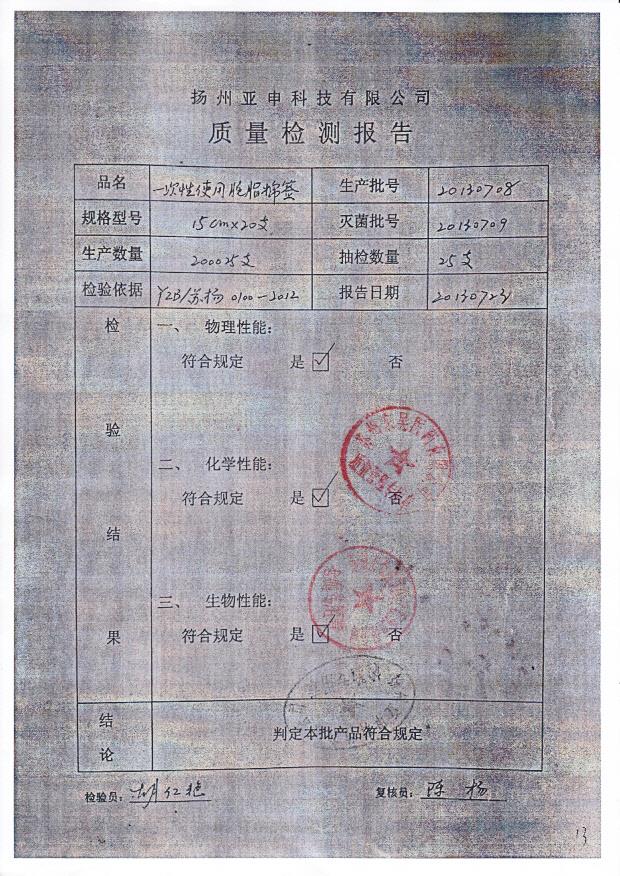 扬州亚申科技有限公司
质量检测报告
品名 一次性使用脱脂棉签 生产批号 20130708
规格型号 15cm×20支 灭菌批号 20130709
生产数量 200025支 抽检数量 25支
检验依据 YZB/苏扬 0100-2012 报告日期 20130723
检验结果
一、 物理性能：
符合规定 是 ☑ 否
二、 化学性能：
符合规定 是 ☑ 否
三、 生物性能：
符合规定 是 ☑ 否
结论 判定本批产品符合规定
检验员： 胡红艳 复核员： 陈杨
13